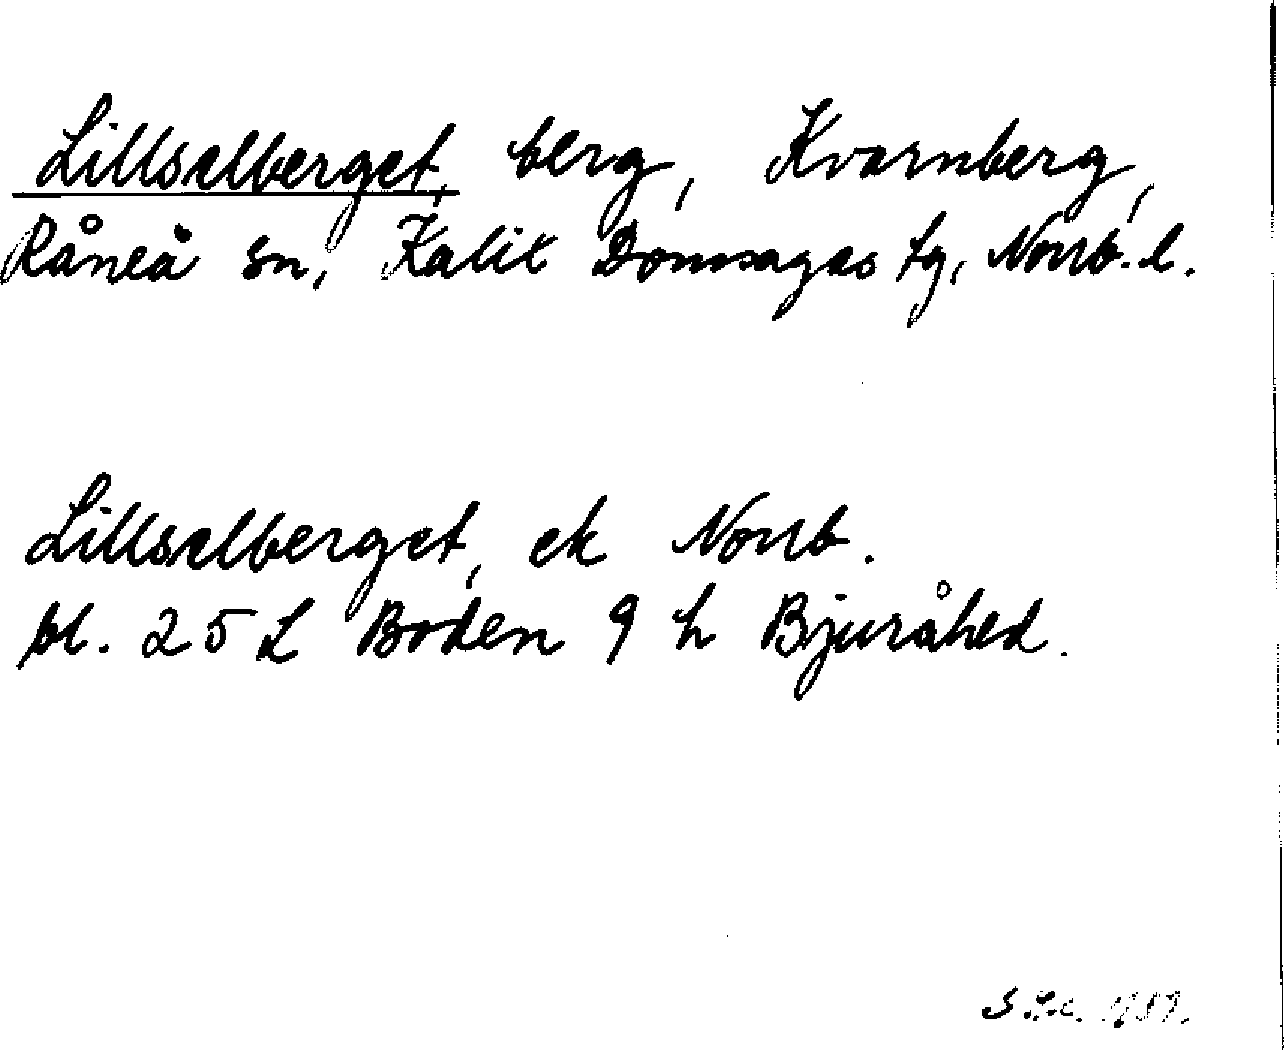 Lillselberget, berg, Kvarnberg,
Råneå sn, Kalix Domsagas tg, Norrb. l.
Lillselberget, ek Norrb.
bl. 25 L Boden 9 h Bjuråhed.